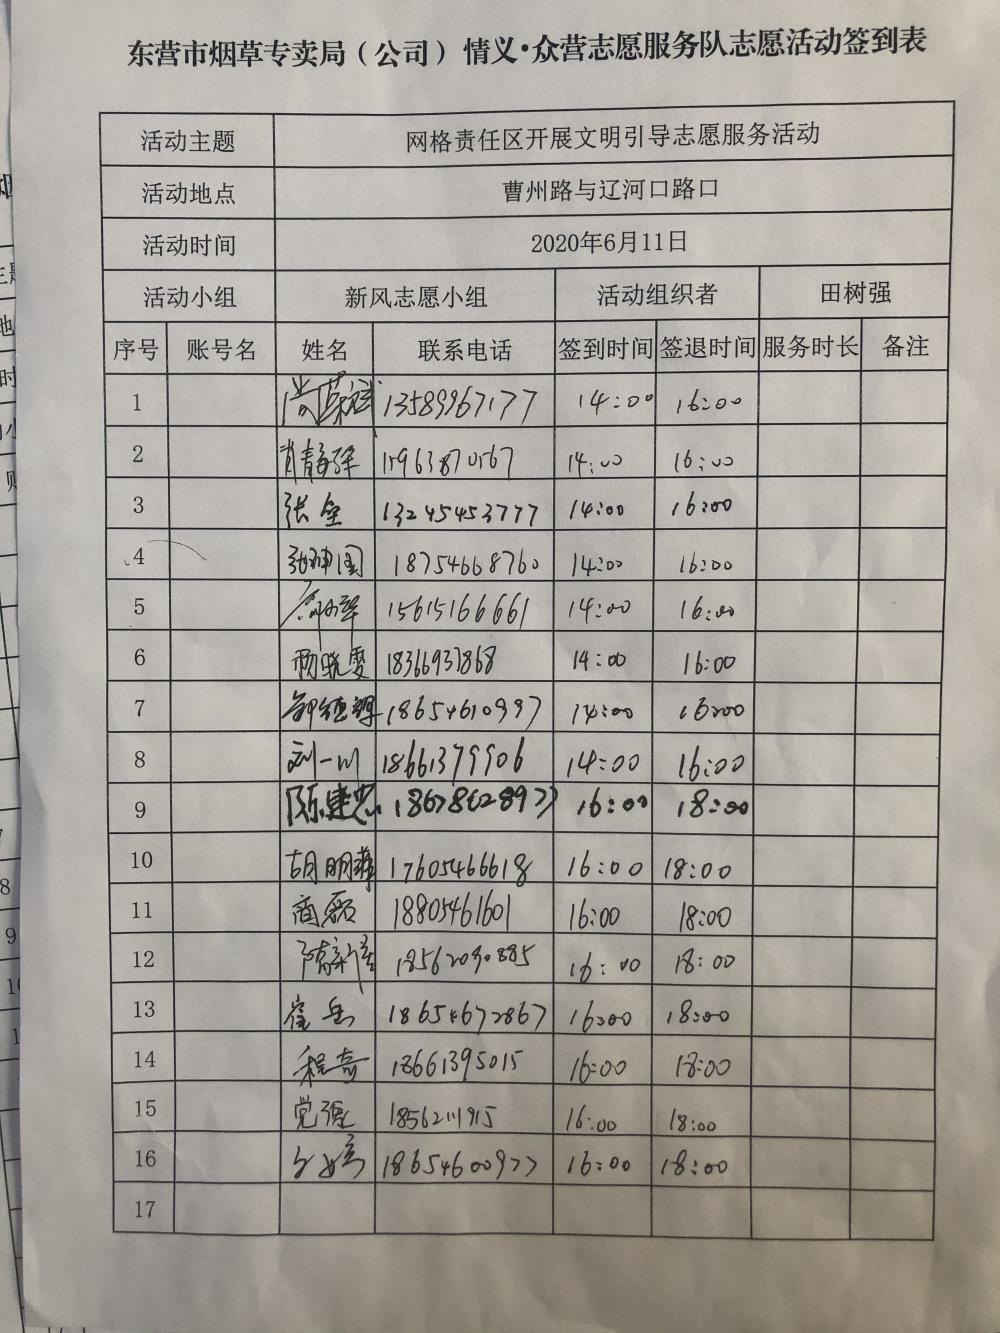 东营市烟草专卖局（公司）情义·众营志愿服务队志愿活动签到表
活动主题 网格责任区开展文明引导志愿服务活动
活动地点 曹州路与辽河口路口
活动时间 2020年6月11日
活动小组 新风志愿小组 活动组织者 田树强
序号 账号名 姓名 联系电话 签到时间 签退时间 服务时长 备注
1 13589967177 14:00 16:00
2 15963870567 14:00 16:00
3 张全 13245453777 14:00 16:00
4 张坤国 18754668760 14:00 16:00
5 15615166661 14:00 16:00
6 杨晓雯 18366937868 14:00 16:00
7 18654610997 14:00 16:00
8 刘一川 18661379906 14:00 16:00
9 陈建忠 16:00 18:00
10 胡明 17605466618 16:00 18:00
11 商磊 18805461601 16:00 18:00
12 18562090885 16:00 18:00
13 崔岳 18654672867 16:00 18:00
14 程奇 18661395015 16:00 18:00
15 党强 18562111915 16:00 18:00
16 18654600977 16:00 18:00
17